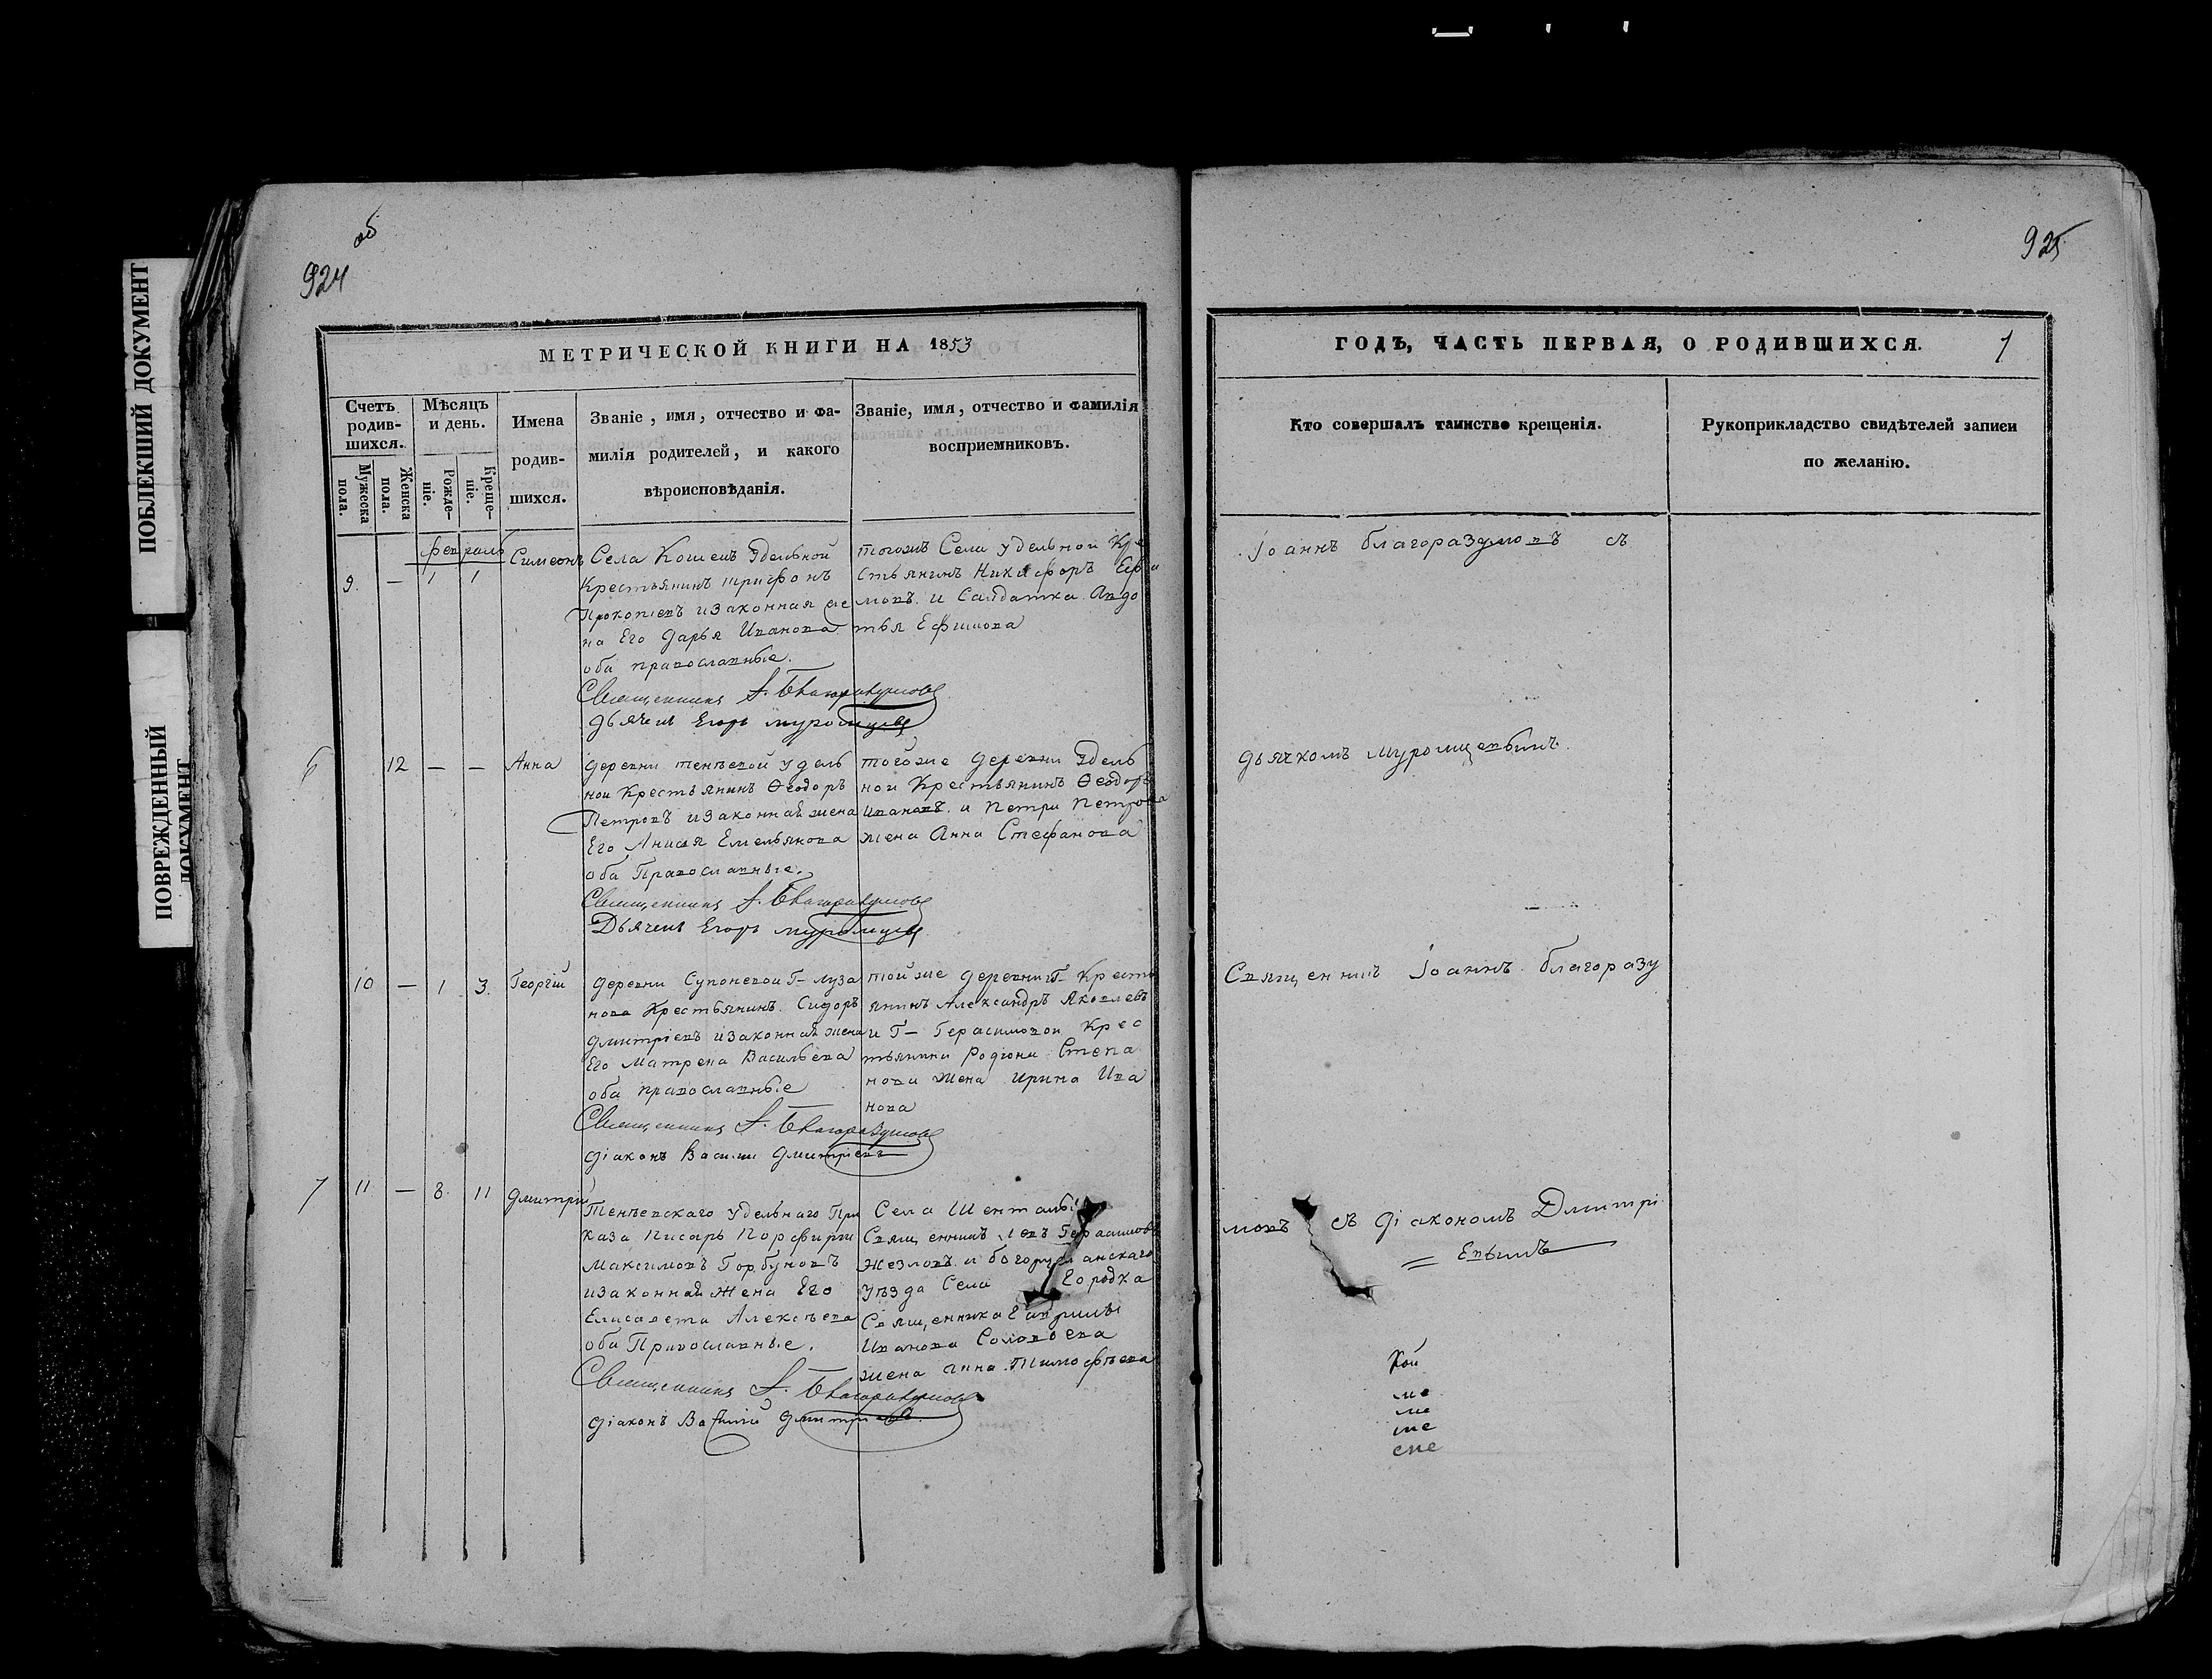 ПОБЛЕКШИЙ ДОКУМЕНТ
ПОВРЕЖДЕННЫЙ
ДОКУМЕНТ
об
924
МЕТРИЧЕСКОЙ КНИГИ НА 1853
Счетъ родив-шихся.
Мѣсяцъ и день.
Имена родив-шихся.
Званіе, имя, отчество и фа-
милія родителей, и какого
вѣроисповѣданія.
Званіе, имя, отчество и фамилія
восприемниковъ.
Мужеска пола.
Женска пола.
Рожде-ніе.
Креще-ніе.
февраль
9. — 1 1 Симеонъ
Села Кошекъ Удельной
Крестьянинъ Трифонъ
Прокопіевъ изаконная же
на Его Дарья Иванова
оба православные.
Священникъ І. Благоразумовъ
Дьячекъ Егоръ Муромцевъ
тогожъ Села удельной Кре
стьянинъ Никифоръ Ефи
мовъ. и Салдатка Авдо
тья Ефимова
6
12 — — Анна
деревни тенѣевой удель
ной Крестьянинъ Ѳеодоръ
Петровъ изаконная жена
Его Анисья Емельянова
оба Православные.
Священникъ І. Благоразумовъ
Дьячекъ Егоръ Муромцевъ
тогоже деревни Удель
ной Крестьянинъ Ѳеодоръ
Ивановъ. и Петра Петрова
жена Анна Стефанова
10 — 1 3. Георгій
деревни Супоневой Г— муза
нова Крестьянинъ. Сидоръ
Дмитріевъ изаконная жена
Его Матрена Васильева
оба православные
Священникъ І. Благоразумовъ
Діаконъ Василій Дмитріевъ
тойже деревни Г— Кресть
янинъ Александръ Яковлевъ
и Г— Герасимовой Крес
тьянина Родіона Степа
нова жена Ирина Ива
нова
7
11 — 8. 11 Дмитрій
Тенѣевскаго удельнаго При
каза Писарь Порфирий
Максимовъ Горбуновъ
изаконная жена Его
Елисавета Алексѣева
оба Православные.
Священникъ І. Благоразумовъ
Діаконъ Василій Дмитріевъ
Села Шенталы
Священникъ Левъ Герасимовъ
Жезловъ. и богорусланскаго
уѣзда Села Городка
Священника Гавриила
Иванова Соловьева
жена Анна Тимофѣева
925
ГОДЪ, ЧАСТЬ ПЕРВАЯ, О РОДИВШИХСЯ.
Кто совершалъ таинство крещенія.
Рукоприкладство свидѣтелей записи
по желанію.
Іоаннъ благоразумовъ съ
дьячкомъ Муромцевымъ.
Священникъ Іоаннъ благоразу
мовъ съ діакономъ Дмитрі
= Евымъ
кой
ме
ме